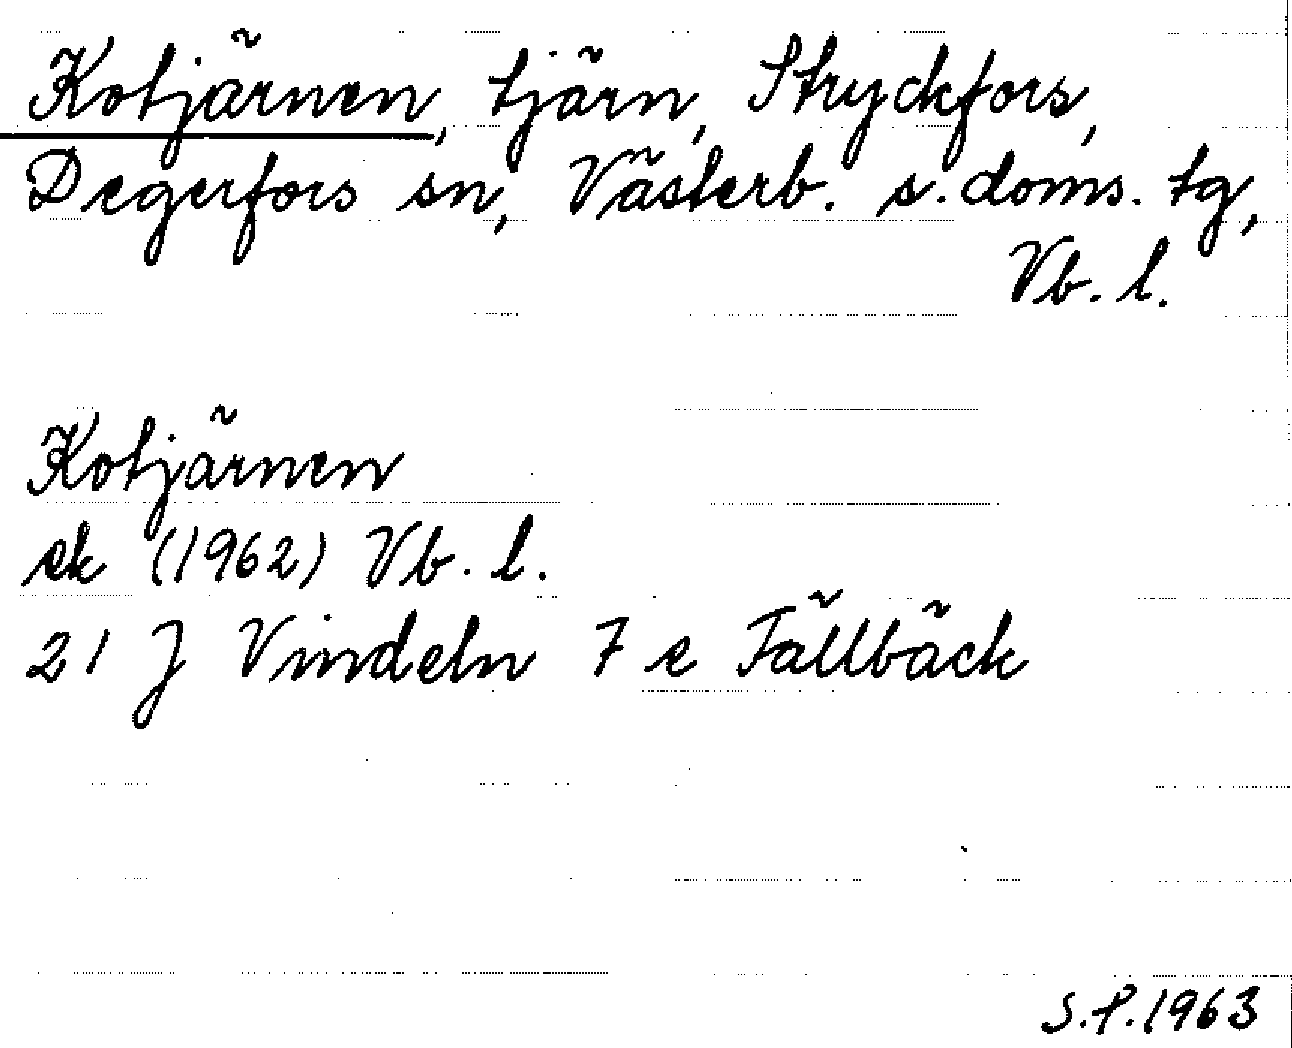 Kotjärnen, tjärn, Stryckfors,
Degerfors sn, Västerb. s. doms. tg,
Vb. l.
Kotjärnen
ek (1962) Vb. l.
21 J Vindeln 7 e Tällbäck
S.P. 1963